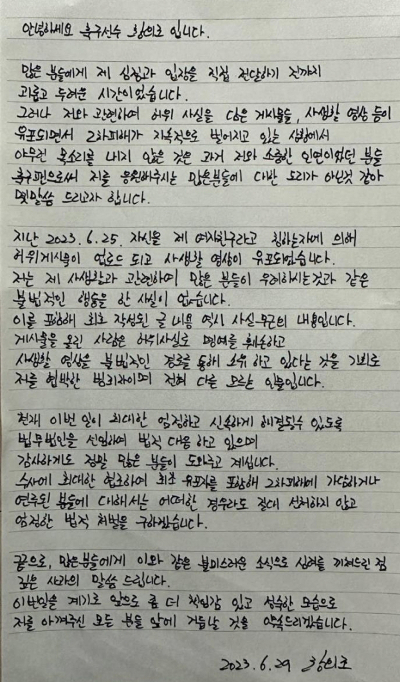 안녕하세요 축구선수 황의조 입니다.
많은 분들에게 제 심정과 입장을 직접 전달하기 전까지
괴롭고 두려운 시간이었습니다.
그러나 저와 관련하여 허위 사실을 담은 게시물들, 사생활 영상 등이
유포되면서 2차피해가 지속적으로 벌어지고 있는 상황에서
아무런 목소리를 내지 않은 것은 과거 저와 소중한 인연이었던 분들
축구팬으로써 저를 응원해주시는 많은분들에 대한 도리가 아닌것 같아
몇말씀 드리고자 합니다.
지난 2023.6.25. 자신을 제 여자친구라고 칭하는자에 의해
허위게시물이 업로드 되고 사생활 영상이 유포되었습니다.
저는 제 사생활과 관련하여 많은 분들이 우려하시는것과 같은
불법적인 행동을 한 사실이 없습니다.
이를 포함해 최초 작성된 글 내용 역시 사실무근의 내용입니다.
게시물을 올린 사람은 허위사실로 명예를 훼손하고
사생활 영상을 불법적인 경로를 통해 소유하고 있다는 것을 기회로
저를 협박한 범죄자이며 전혀 다를 모르는 인물입니다.
현재 이번 일이 최대한 엄정하고 신속하게 해결될수 있도록
법무법인을 선임하여 법적 대응 하고 있으며
감사하게도 정말 많은 분들이 도와주고 계십니다.
수사에 최대한 협조하여 최초 유포자를 포함해 2차피해에 가담하거나
연루된 분들에 대해서는 어떠한 경우라도 절대 선처하지 않고
엄정한 법적 처벌을 구하겠습니다.
끝으로, 많은분들에게 이와 같은 불미스러운 소식으로 심려를 끼쳐드린 점
깊은 사과의 말씀 드립니다.
이번일을 계기로 앞으로 좀 더 책임감 있고 성숙한 모습으로
저를 아껴주신 모든 분들 앞에 거듭날 것을 약속드리겠습니다.
2023.6.29 황의조